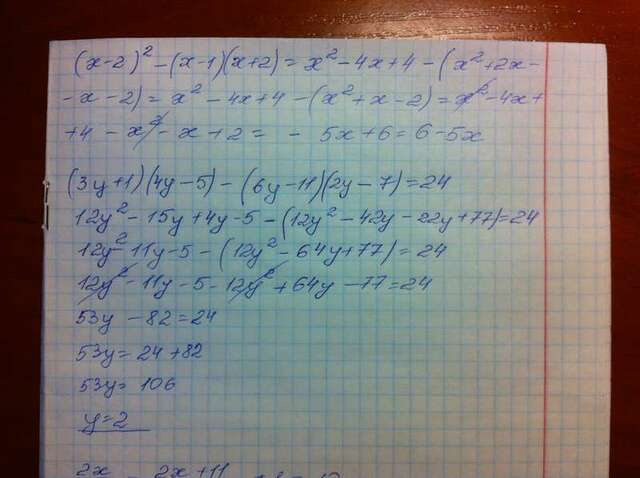 (x-2)² - (x-1)(x+2) = x² - 4x + 4 - (x² + 2x -
- x - 2) = x² - 4x + 4 - (x² + x - 2) = x² - 4x +
+ 4 - x² - x + 2 = - 5x + 6 = 6 - 5x
(3y+1)(4y-5) - (6y-11)(2y-7) = 24
12y² - 15y + 4y - 5 - (12y² - 42y - 22y + 77) = 24
12y² - 11y - 5 - (12y² - 64y + 77) = 24
12y² - 11y - 5 - 12y² + 64y - 77 = 24
53y - 82 = 24
53y = 24 + 82
53y = 106
y = 2
2x 2x+11